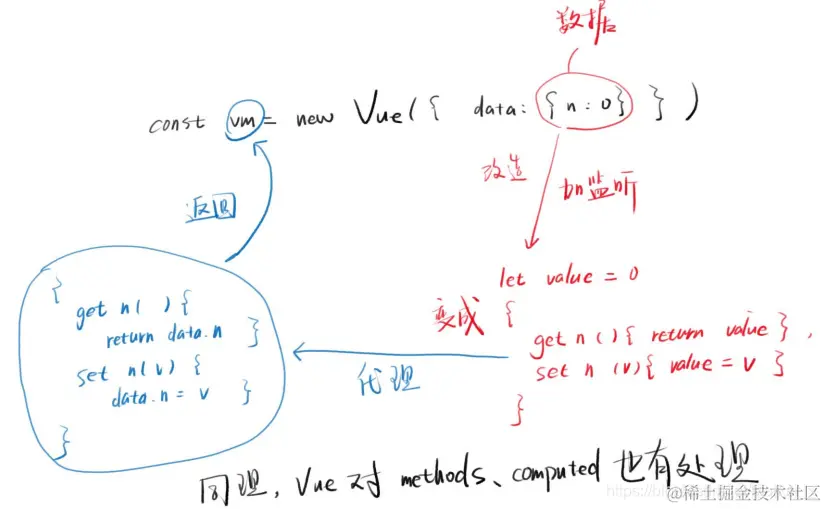 数据
const vm = new Vue({ data: {n:0} })
改造
加监听
返回
let value = 0
变成
{
get n(){ return value },
set n(v){ value = v }
}
代理
{
get n( ){
return data.n
}
set n(v) {
data.n = v
}
}
同理,Vue 对 methods、computed 也有处理
@稀土掘金技术社区